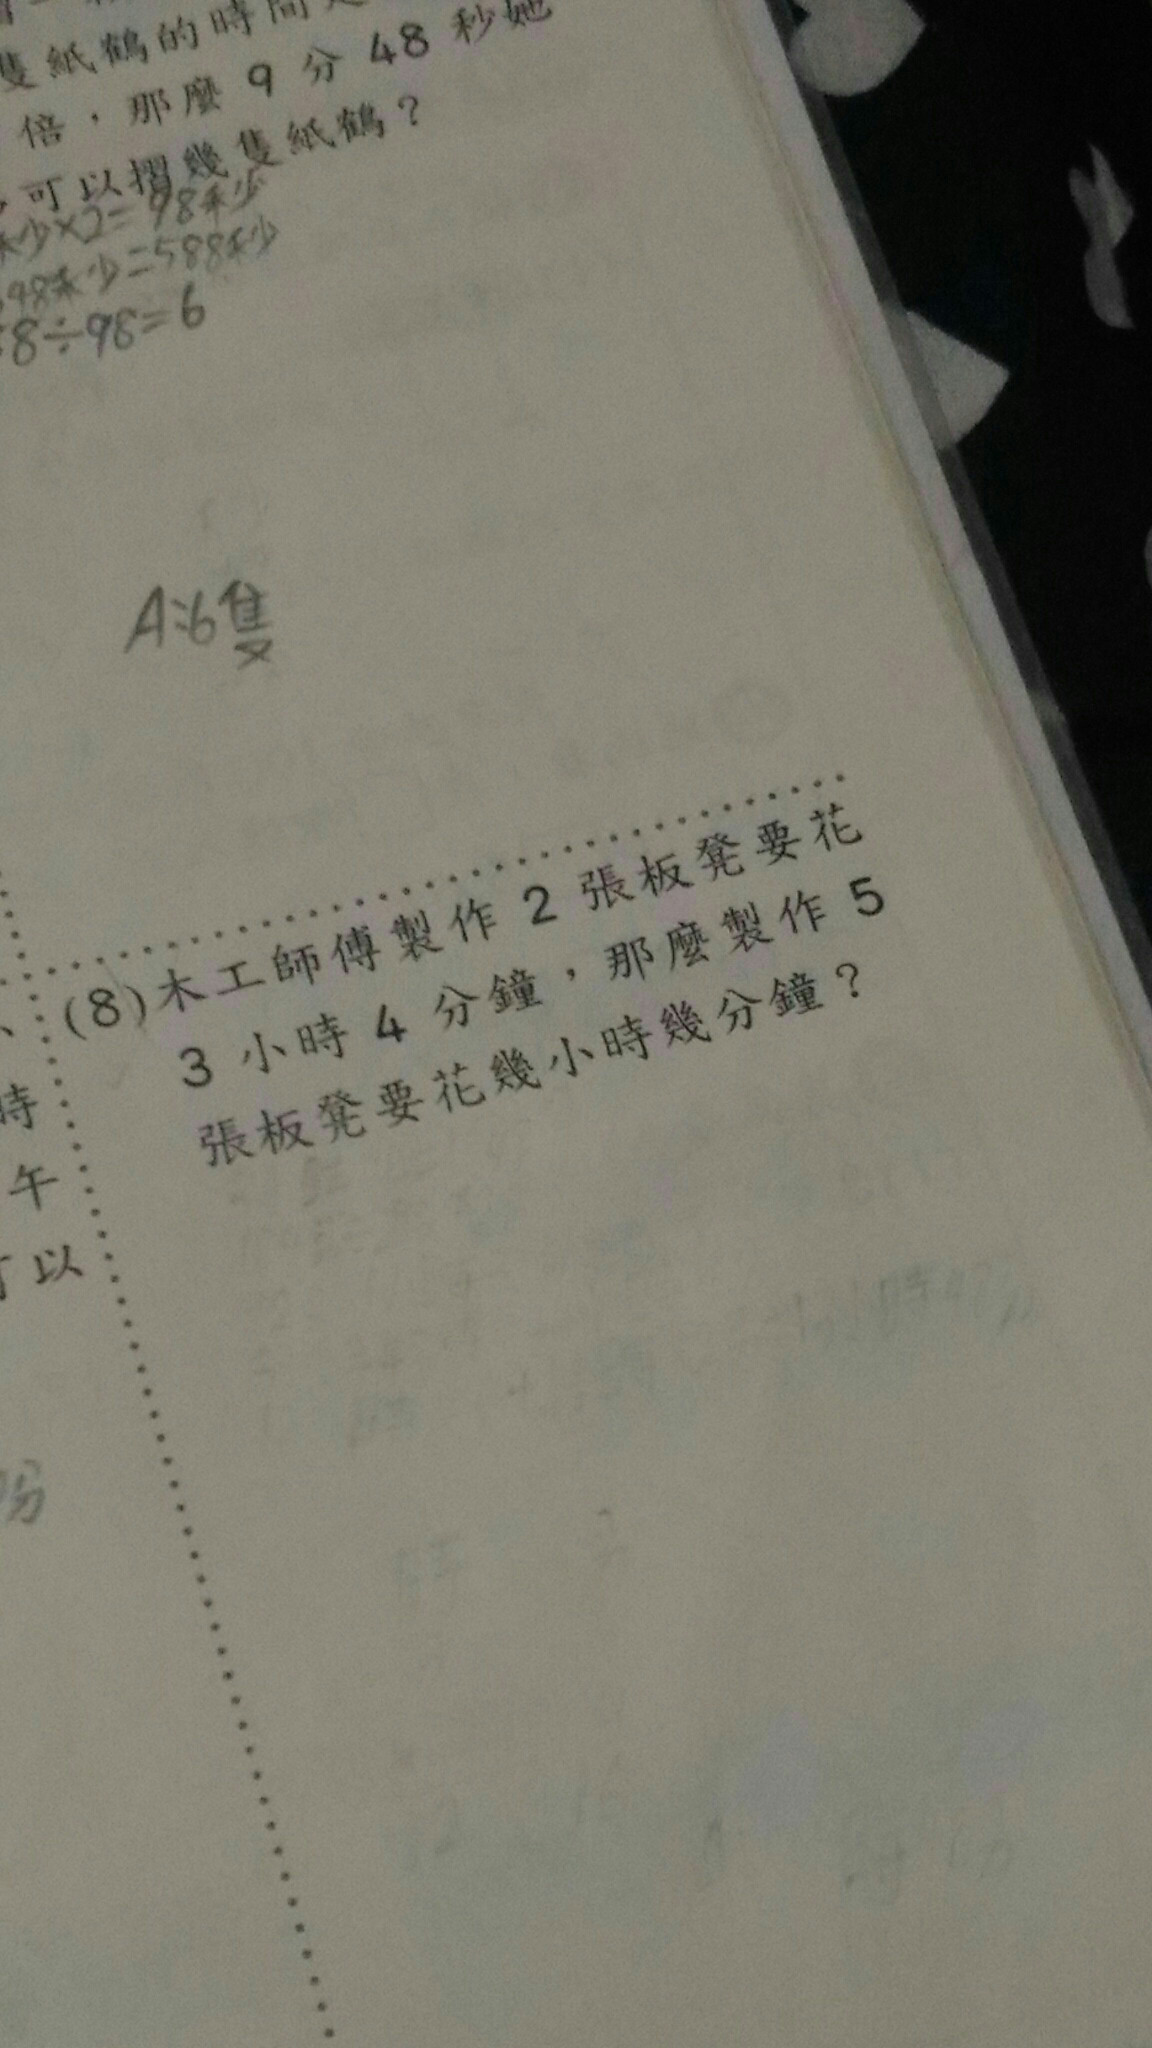 隻紙鶴的時間
倍，那麼 9 分 48 秒她
可以摺幾隻紙鶴？
秒×2=98秒
48秒=588秒
8÷98=6
A:6隻
(8)木工師傅製作 2 張板凳要花
3 小時 4 分鐘，那麼製作 5
張板凳要花幾小時幾分鐘？
時
午
可以
分